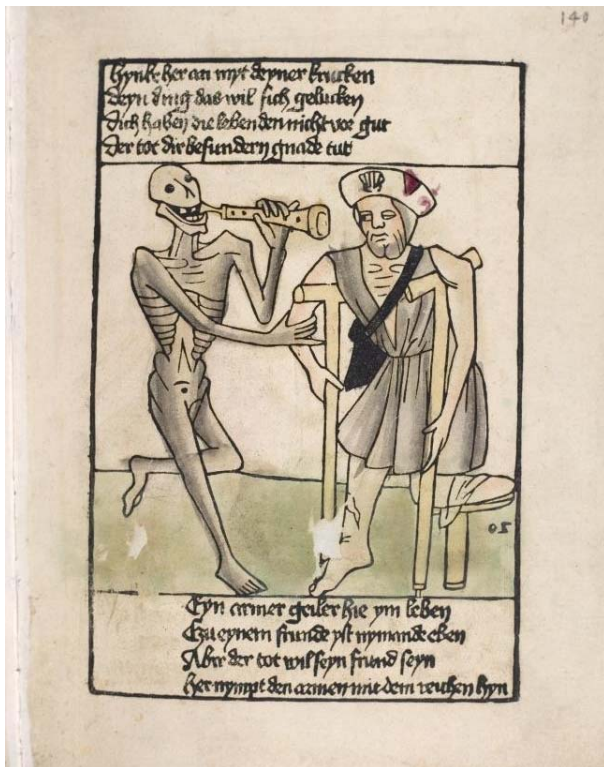 140
hynke her an myt deyner krucken
deyn ding das wil sich gelucken
dich haben die lebenden nicht vor gut
der tot dir besundern gnade tut
Eyn armer geiler hie ym leben
Czu eynem frunde yst nymande eben
Aber der tot wil seyn frund seyn
her nympt den armen mit dem reichen hyn